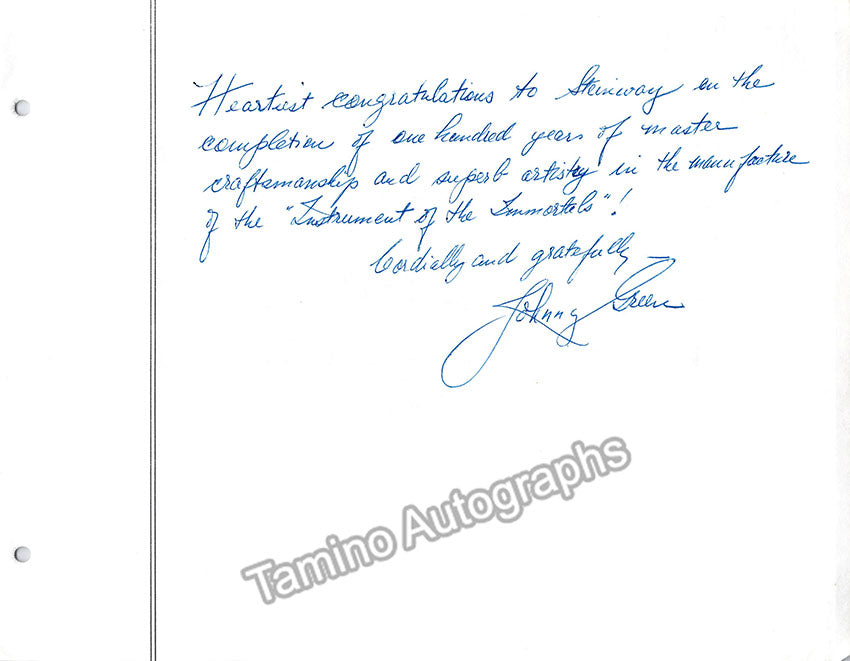 Heartiest congratulations to Steinway on the
completion of one hundred years of master
craftsmanship and superb artistry in the manufacture
of the "Instrument of the Immortals"!
Cordially and gratefully
Johnny Green
Tamino Autographs